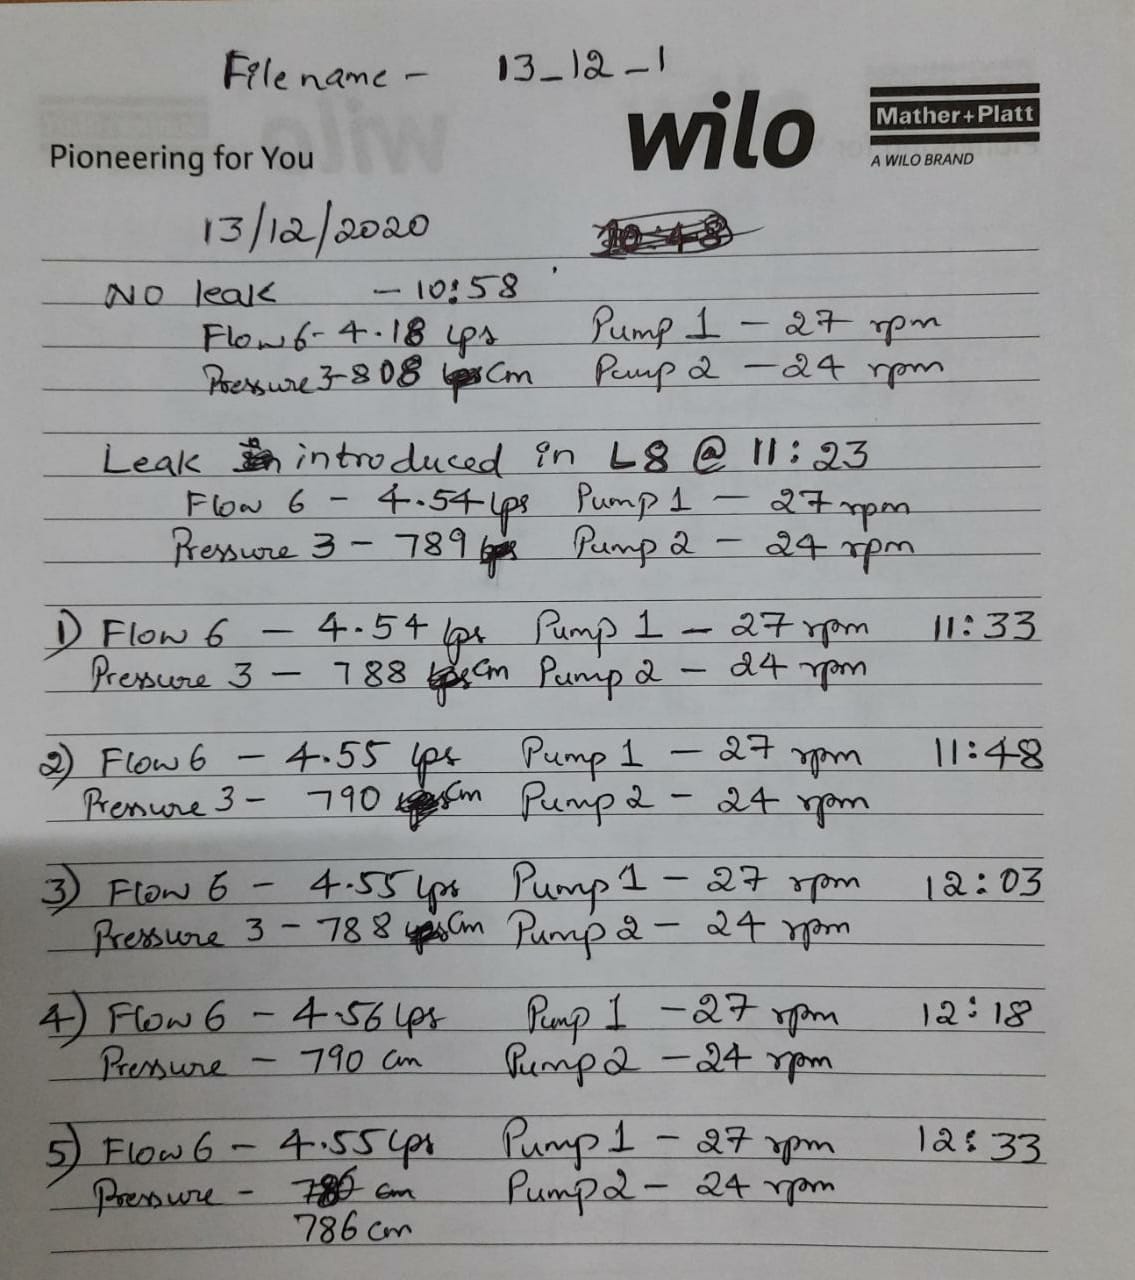 File name - 13_12_1
wilo
Mather+Platt
A WILO BRAND
Pioneering for You
13/12/2020
NO leak - 10:58
Flow 6 - 4.18 lps Pump 1 - 27 rpm
Pressure 3 - 808 cm Pump 2 - 24 rpm
Leak introduced in L8 @ 11:23
Flow 6 - 4.54 lps Pump 1 - 27 rpm
Pressure 3 - 789 Pump 2 - 24 rpm
1) Flow 6 - 4.54 lps Pump 1 - 27 rpm 11:33
Pressure 3 - 788 cm Pump 2 - 24 rpm
2) Flow 6 - 4.55 lps Pump 1 - 27 rpm 11:48
Pressure 3 - 790 cm Pump 2 - 24 rpm
3) Flow 6 - 4.55 lps Pump 1 - 27 rpm 12:03
Pressure 3 - 788 cm Pump 2 - 24 rpm
4) Flow 6 - 4.56 lps Pump 1 - 27 rpm 12:18
Pressure - 790 cm Pump 2 - 24 rpm
5) Flow 6 - 4.55 lps Pump 1 - 27 rpm 12:33
Pressure - cm Pump 2 - 24 rpm
786 cm